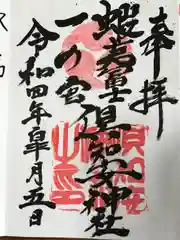 奉拝
蝦夷富士
一の宮
倶知安神社
令和四年皐月五日